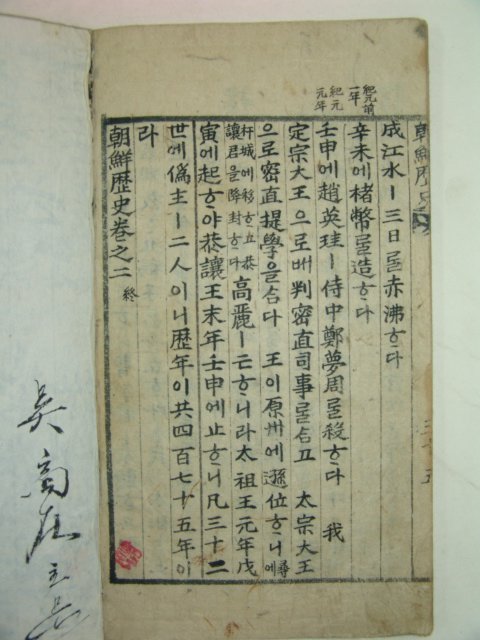 朝鮮歷史
成江水ㅣ三日ᄅᆞᆯ赤沸ᄒᆞ다
紀元前一年
辛未에楮幣ᄅᆞᆯ造ᄒᆞ다
紀元元年
壬申에趙英珪ㅣ侍中鄭夢周ᄅᆞᆯ殺ᄒᆞ다 我
定宗大王으로ᄡᅥ判密直司事ᄅᆞᆯᄉᆞᆷ고 太宗大王
으로密直提學을ᄉᆞᆷ다 王이原州에遜位ᄒᆞ니尋에
杆城에移ᄒᆞ고恭讓君을降封ᄒᆞ다高麗ㅣ亡ᄒᆞ니라太祖王元年戊
寅에起ᄒᆞ야恭讓王末年壬申에止ᄒᆞ니凡三十二
世에僞主ㅣ二人이니歷年이共四百七十五年이
라
朝鮮歷史卷之二 終
吳